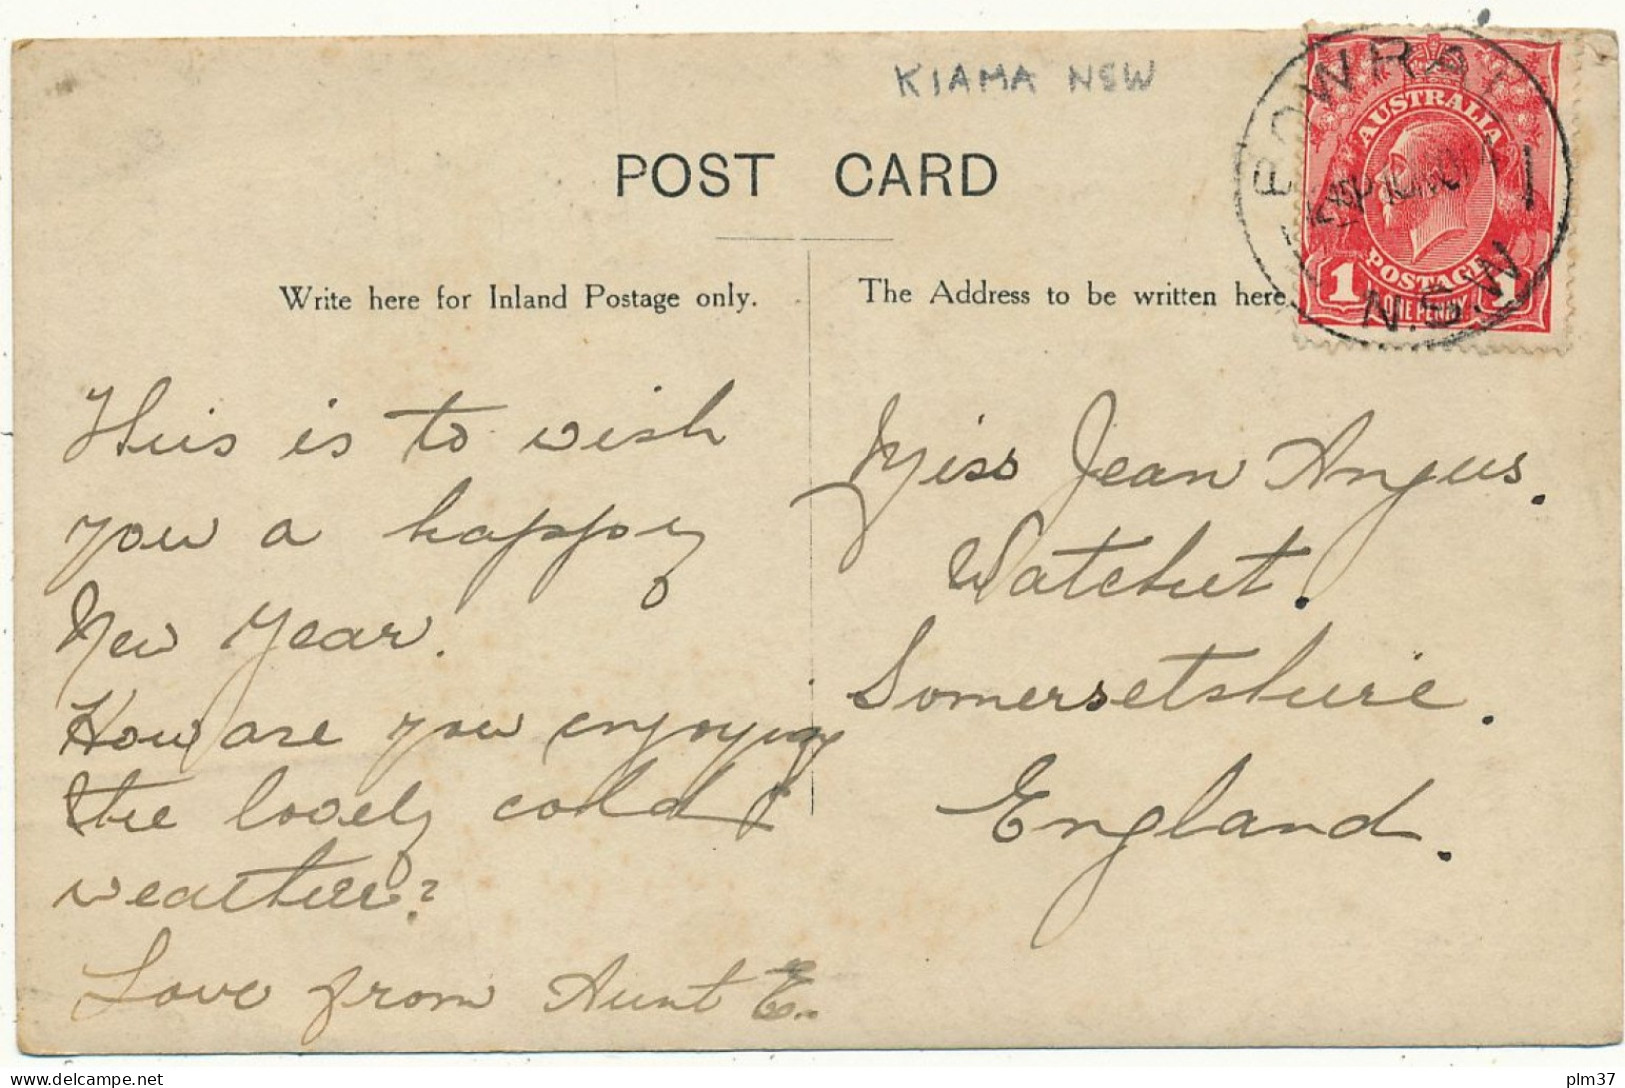 KIAMA NSW
POST CARD
BOWRAL
N.S.W
AUSTRALIA
POSTAGE
1
ONE PENNY
1
Write here for Inland Postage only.
This is to wish
you a happy
New Year.
How are you enjoying
the lovely cold
weather?
Love from Aunt E.
The Address to be written here
Miss Jean Angus.
Watchet.
Somersetshire.
England.
delcampe.net
plm37